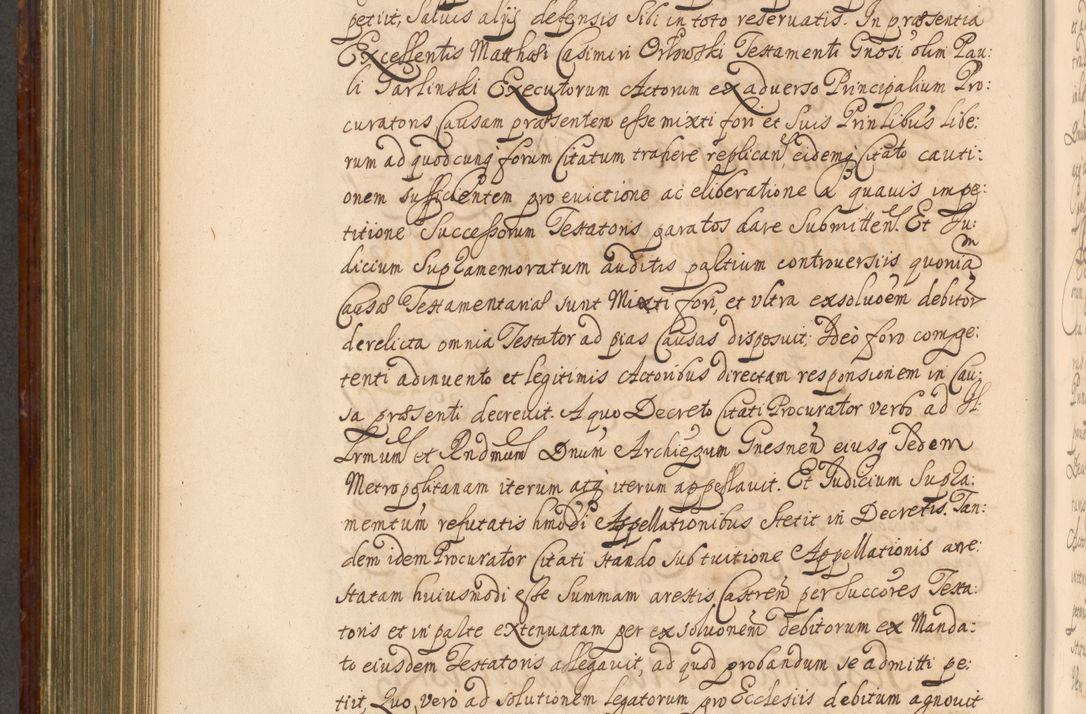 petiit, Salvis alijs defensis Sibi in toto reservatis. In præsentia
Excellentis Matthæi Casimiri Orłowski Testamenti Gnosi olim Pau:
li Jarlinski Executorum Actorum ex adverso Principalium Pro:
curatoris, Causam præsentem esse mixti fori et Suis Prinlibus libe:
rum ad quodcunq forum Citatum trahere replican̄ eidemq Citato cauti:
onem sufficientem pro evictione ac eliberatione a quavis impe:
titione Successorum Testatoris paratos dare Submitten̄. Et Ju:
dicium Supramemoratum auditis partium controversiis quoniam
Causæ Testamentariæ sunt Mixti fori, et ultra exsoluōem debitor
derelicta omnia Testator ad pias Causas disposuit, Ideo foro compe:
tenti adinvento et legitimis Actoribus directam responsionem in Cau:
sa præsenti decrevit. A quo Decreto Citati Procurator verbo ad Il:
Lrmum et Rndmum Dnum Archiepum Gnesnen̄ eiusq Sedem
Metropolitanam iterum atq iterum appellavit. Et Judicium Supra:
memtum refutatis hmodi Appellationibus Stetit in Decretis. Tan:
dem idem Procurator Citati stando sub tuitione Appellationis arre:
statam huiusmodi esse Summam arestis Castren̄ per Succores Testa:
toris et in parte extenuatam per exsolutionem debitorum ex Manda:
to eiusdem Testatoris allegavit, ad quod probandum se admitti pe:
tiit, Quo vero ad solutionem legatorum pro Ecclesiis debitum agnovit